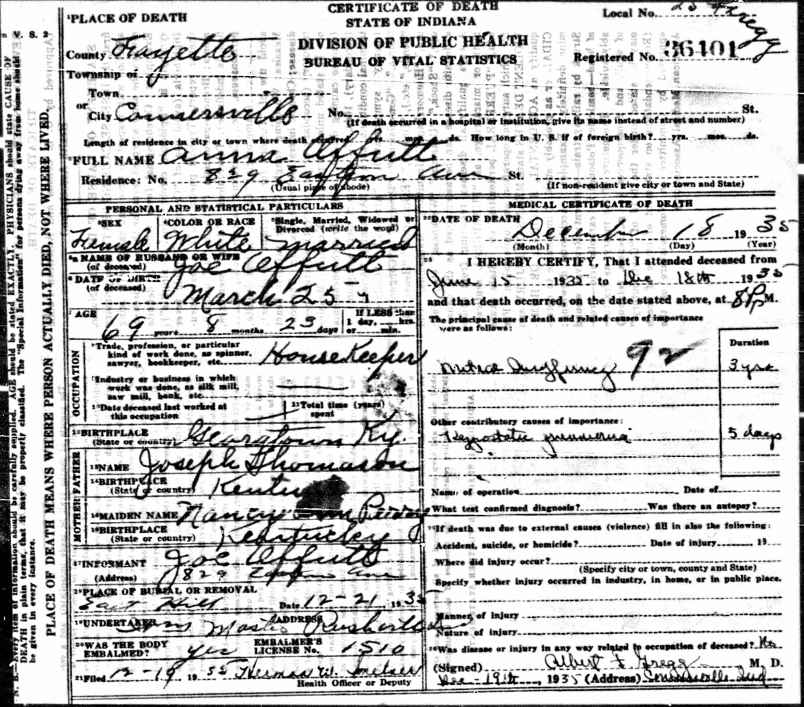 CERTIFICATE OF DEATH
STATE OF INDIANA
DIVISION OF PUBLIC HEALTH
BUREAU OF VITAL STATISTICS
Local No.
Registered No. 36401
PLACE OF DEATH
County Fayette
Township of
Town
or
City Connersville No. St.
(If death occurred in a hospital or institution, give its name instead of street and number)
Length of residence in city or town where death occurred yrs. mos. ds. How long in U. S. if of foreign birth? yrs. mos. ds.
FULL NAME Anna Offutt
Residence: No. 829 Eastern Ave St.
(Usual place of abode) (If non-resident give city or town and State)
PERSONAL AND STATISTICAL PARTICULARS
SEX Female
COLOR OR RACE White
Single, Married, Widowed or Divorced (write the word) Married
NAME OF HUSBAND OR WIFE
(of deceased) Joe Offutt
DATE OF BIRTH
(of deceased) March 25
AGE 69 years 8 months 23 days
If LESS than 1 day, hrs. or min.
OCCUPATION
Trade, profession, or particular kind of work done, as spinner, sawyer, bookkeeper, etc. HouseKeeper
Industry or business in which work was done, as silk mill, saw mill, bank, etc.
Date deceased last worked at this occupation
Total time (years) spent
BIRTHPLACE
(State or country) Georgtown Ky.
FATHER
NAME Joseph Thomason
BIRTHPLACE
(State or country)
MOTHER
MAIDEN NAME Nancy
BIRTHPLACE
(State or country) Kentucky
INFORMANT Joe Offutt
(Address) 829
PLACE OF BURIAL OR REMOVAL
East Hill Date 12-21 1935
UNDERTAKER ADDRESS
Rushville
WAS THE BODY EMBALMED? yes
EMBALMER'S LICENSE No. 1510
Filed 12-19 1935 Herman W.
Health Officer or Deputy
MEDICAL CERTIFICATE OF DEATH
DATE OF DEATH
December 18 1935
(Month) (Day) (Year)
I HEREBY CERTIFY, That I attended deceased from
June 15 1935 to Dec 18th 1935
and that death occurred, on the date stated above, at 8 P M.
The principal cause of death and related causes of importance
were as follows:
Duration
Mitral Insufficiency 92 3 yrs
Other contributory causes of importance:
Hypostatic pneumonia 5 days
Name of operation Date of
What test confirmed diagnosis? Was there an autopsy?
If death was due to external causes (violence) fill in also the following:
Accident, suicide, or homicide? Date of injury 19
Where did injury occur?
(Specify city or town, county and State)
Specify whether injury occurred in industry, in home, or in public place.
Manner of injury
Nature of injury
Was disease or injury in any way related to occupation of deceased? No
(Signed) Albert F. Gregg M. D.
Dec - 19th, 1935 (Address) Connersville Ind
PLACE OF DEATH MEANS WHERE PERSON ACTUALLY DIED, NOT WHERE LIVED.